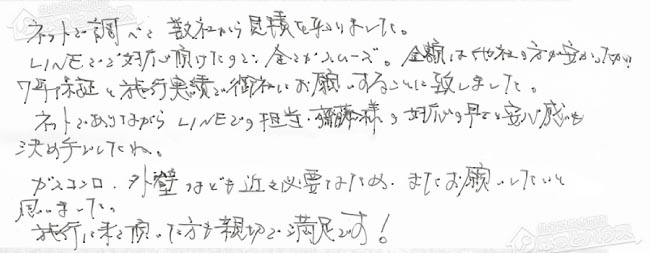 ネットで調べて数社から見積を取りました。
LINEでご対応頂けたので全てがスムーズ。金額は他社の方が安かったが
7年保証と施行実績で御社にお願いすることに致しました。
ネットでありながらLINEでの担当・齋藤様の対応の早さと安心感も
決め手でしたね。
ガスコンロ、外壁なども近々必要なため、またお願いしたいと
思いました。
施行に来て頂いた方も親切で満足です!